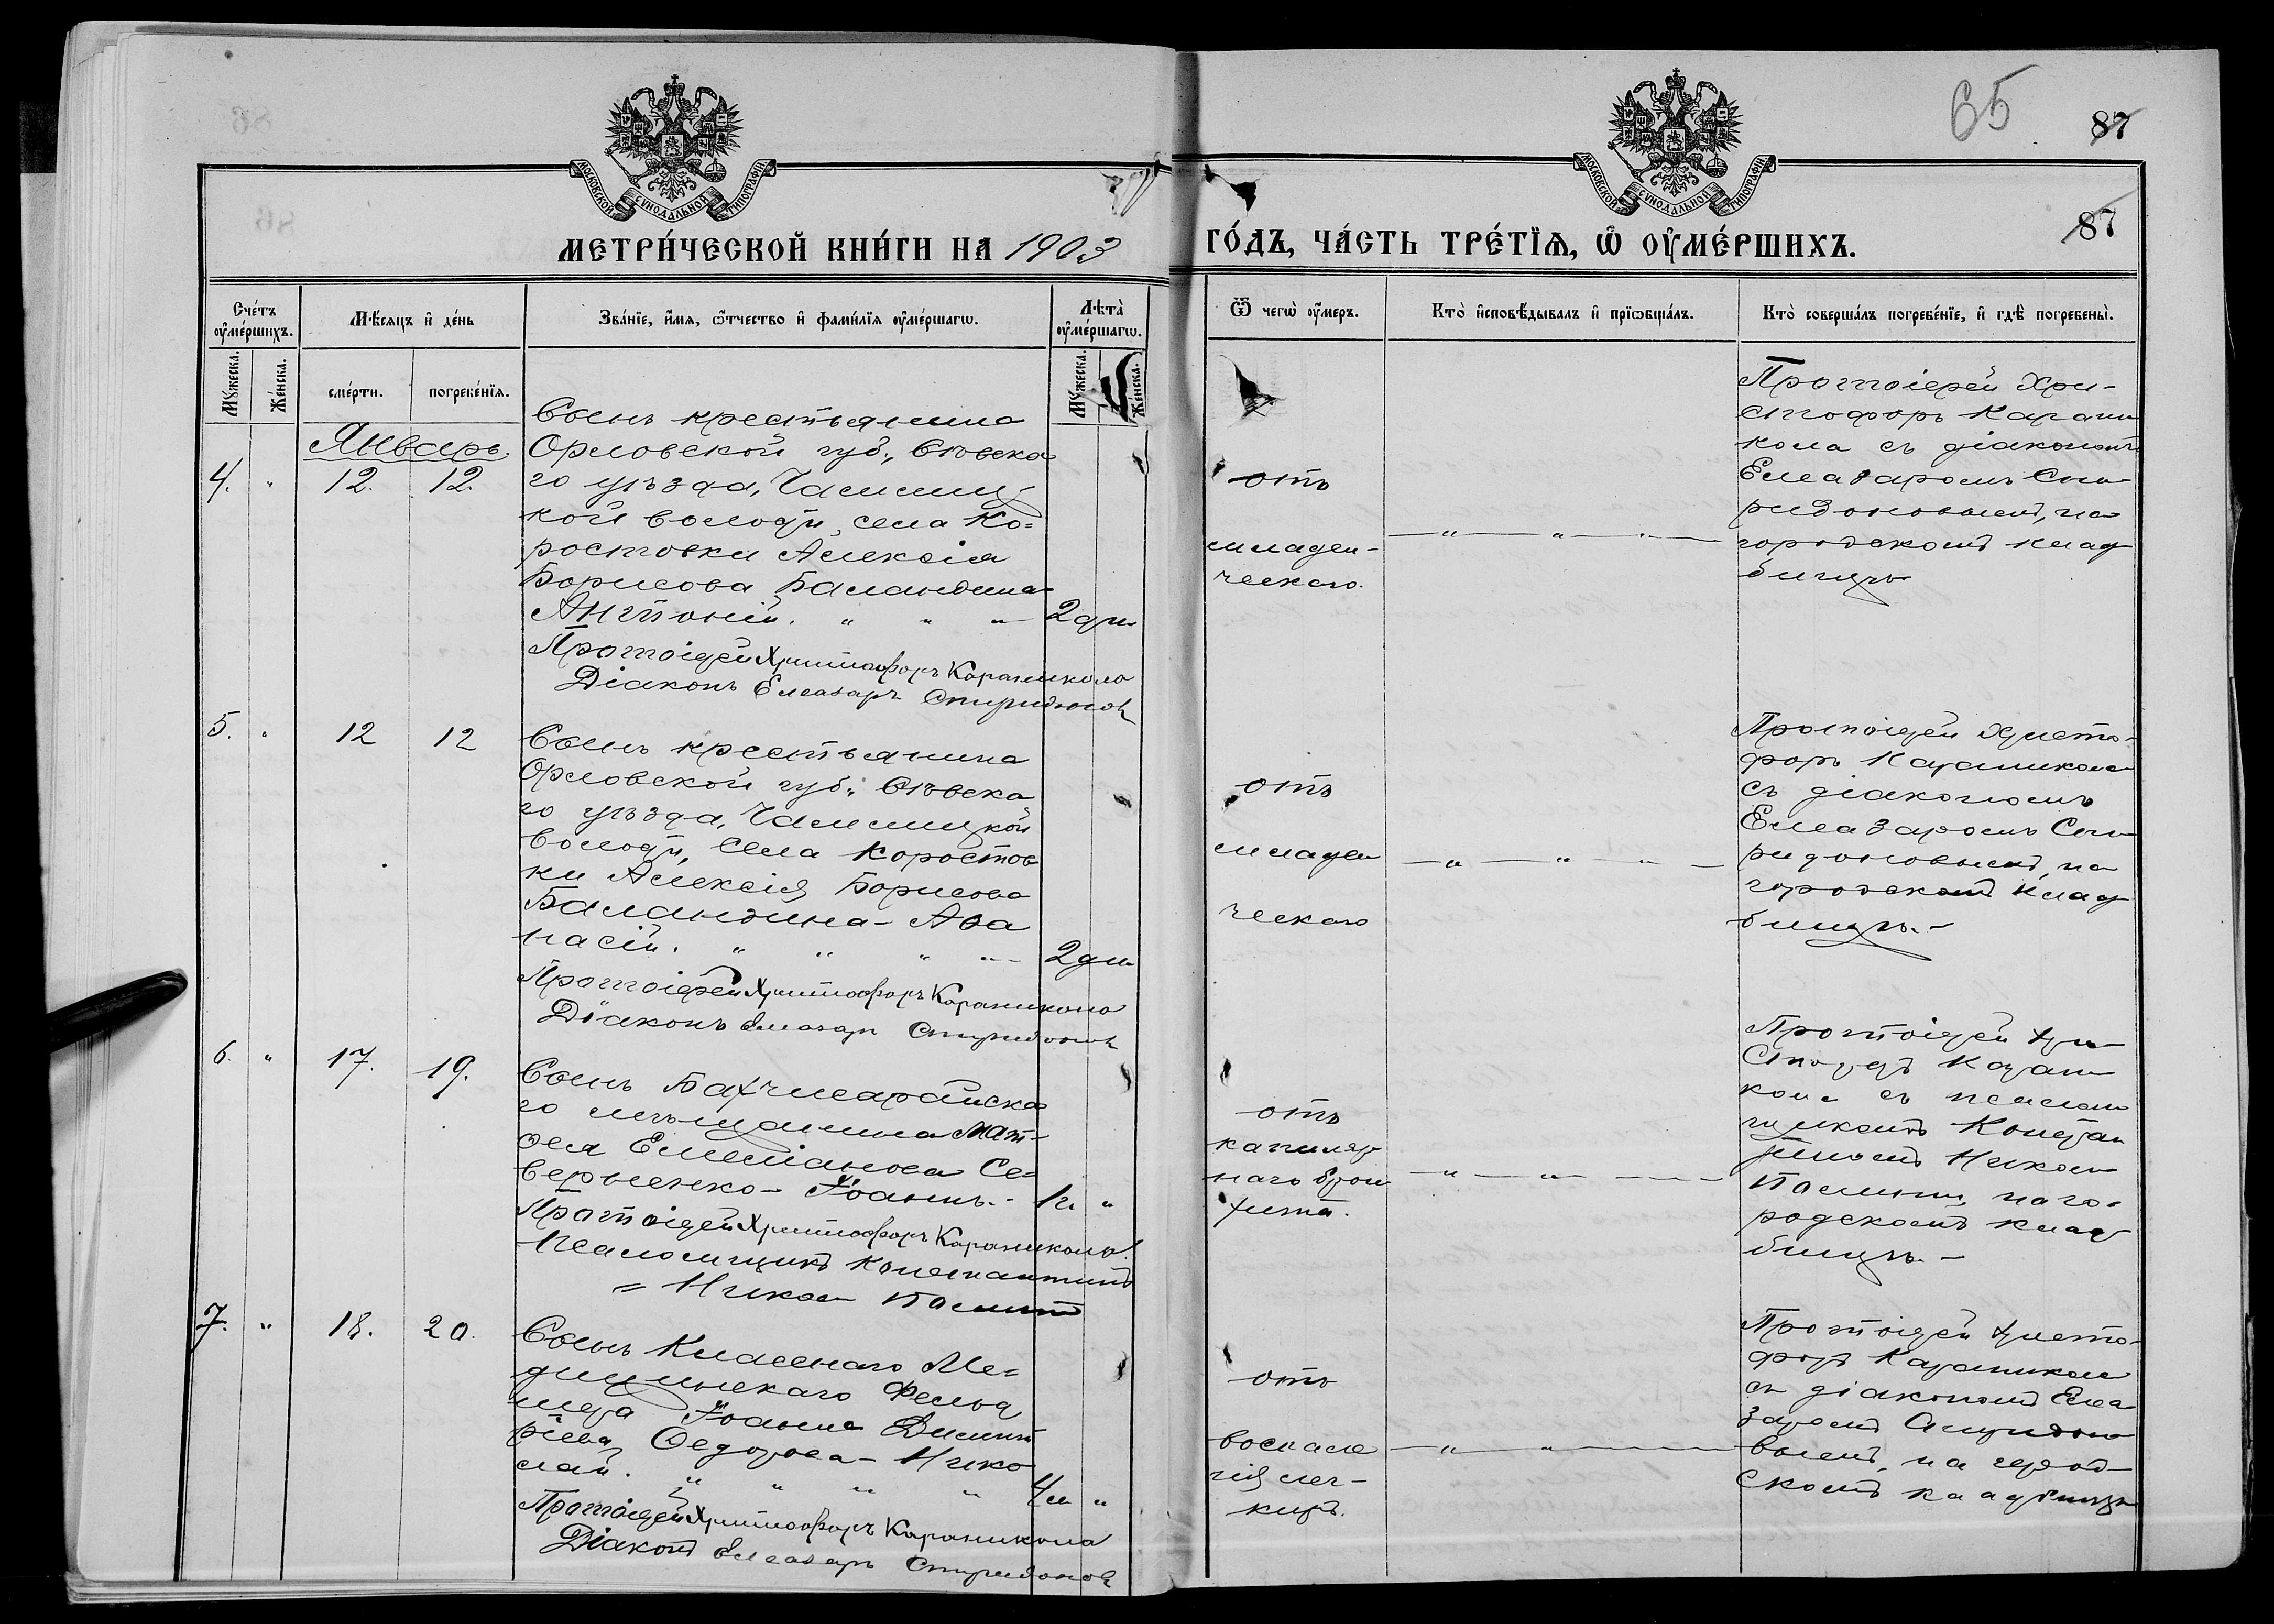 65
87
87
МОСКОВСКОЙ СѴНОДАЛЬНОЙ ТИПОГРАФІИ
МОСКОВСКОЙ СѴНОДАЛЬНОЙ ТИПОГРАФІИ
МЕТРИ́ЧЕСКОЙ КНИ́ГИ НА 1903 ГО́ДЪ, ЧА́СТЬ ТРЕ́ТЇѦ, Ѡ ОУ҆МЕ́РШИХЪ.
Сче́тъ оу҆ме́ршихъ.
Мꙋжеска.
Же́нска.
Мѣ́сяцъ и҆ де́нь
сме́рти.
погребе́нїѧ.
Зва́нїе, и҆́мѧ, ѻ҆́тчество и҆ фами́лїѧ оу҆ме́ршагѡ.
Лѣта̀ оу҆ме́ршагѡ.
Мꙋжеска.
Же́нска.
Ѿ чегѡ̀ оу҆́меръ.
Кто̀ и҆сповѣ́дывалъ и҆ прїѡбща́лъ.
Кто̀ соверша́лъ погребе́нїе, и҆ гдѣ̀ погребены̀.
Январь.
4. " 12. 12.
Сынъ крестьянина
Орловской губ., Сѣвска
го уѣзда,
кой волости, села Ко-
ростовки Алексія
Борисова Баландина
Антоній. " " " 2 дн
Протоіерей Христофоръ Караникола
Діаконъ Елеазаръ Спиридонов
отъ
младен-
ческаго.
Протоіерей Хри-
стофоръ Карани
кола съ діакономъ
Елеазаромъ Спи-
ридоновымъ, на
городскомъ клад
бищѣ
5. " 12 12
Сынъ крестьянина
Орловской губ., Сѣвска
го уѣзда,
волости, села Коростов
ки Алексія Борисова
Баландина - Аѳа
насій. " " " 2 дн
Протоіерей Христофоръ Караникола
Діаконъ Елеазаръ Спиридонов
отъ
младен
ческаго
Протоіерей Христо-
форъ Караникола
съ діакономъ
Елеазаромъ Спи-
ридоновымъ, на
городскомъ клад
бищѣ. -
6. " 17. 19.
Сынъ Бахчисарайска
го мѣщанина Мат-
ѳея Емеліанова Се-
верненко - Іоаннъ. - 1 г. "
Протоіерей Христофоръ Караникола
Псаломщикъ Константинъ
= Никол
отъ
капиляр
наго брон
хита.
Протоіерей Хри-
Стофоръ Карани
кола съ псалом
щикомъ Констан
тиномъ Никол
на го-
родскомъ клад
бищѣ. -
7. " 18. 20.
Сынъ Класснаго Ме-
дицинскаго Фельд
шера Іоанна Димит
ріева Ѳедорова - Нико
лай. " " " " 4 м "
Протоіерей Христофоръ Караникола
Діаконъ Елеазаръ Спиридонов
отъ
воспале
нія лег-
кихъ.
Протоіерей Христо-
форъ Караникола
съ діакономъ Елеа
заромъ Спиридоно
вымъ, на город-
скомъ кладбищѣ